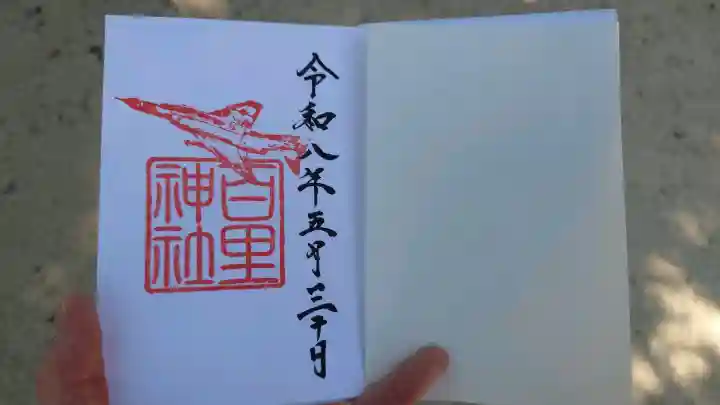 令和八年五月三十日
百里
神社